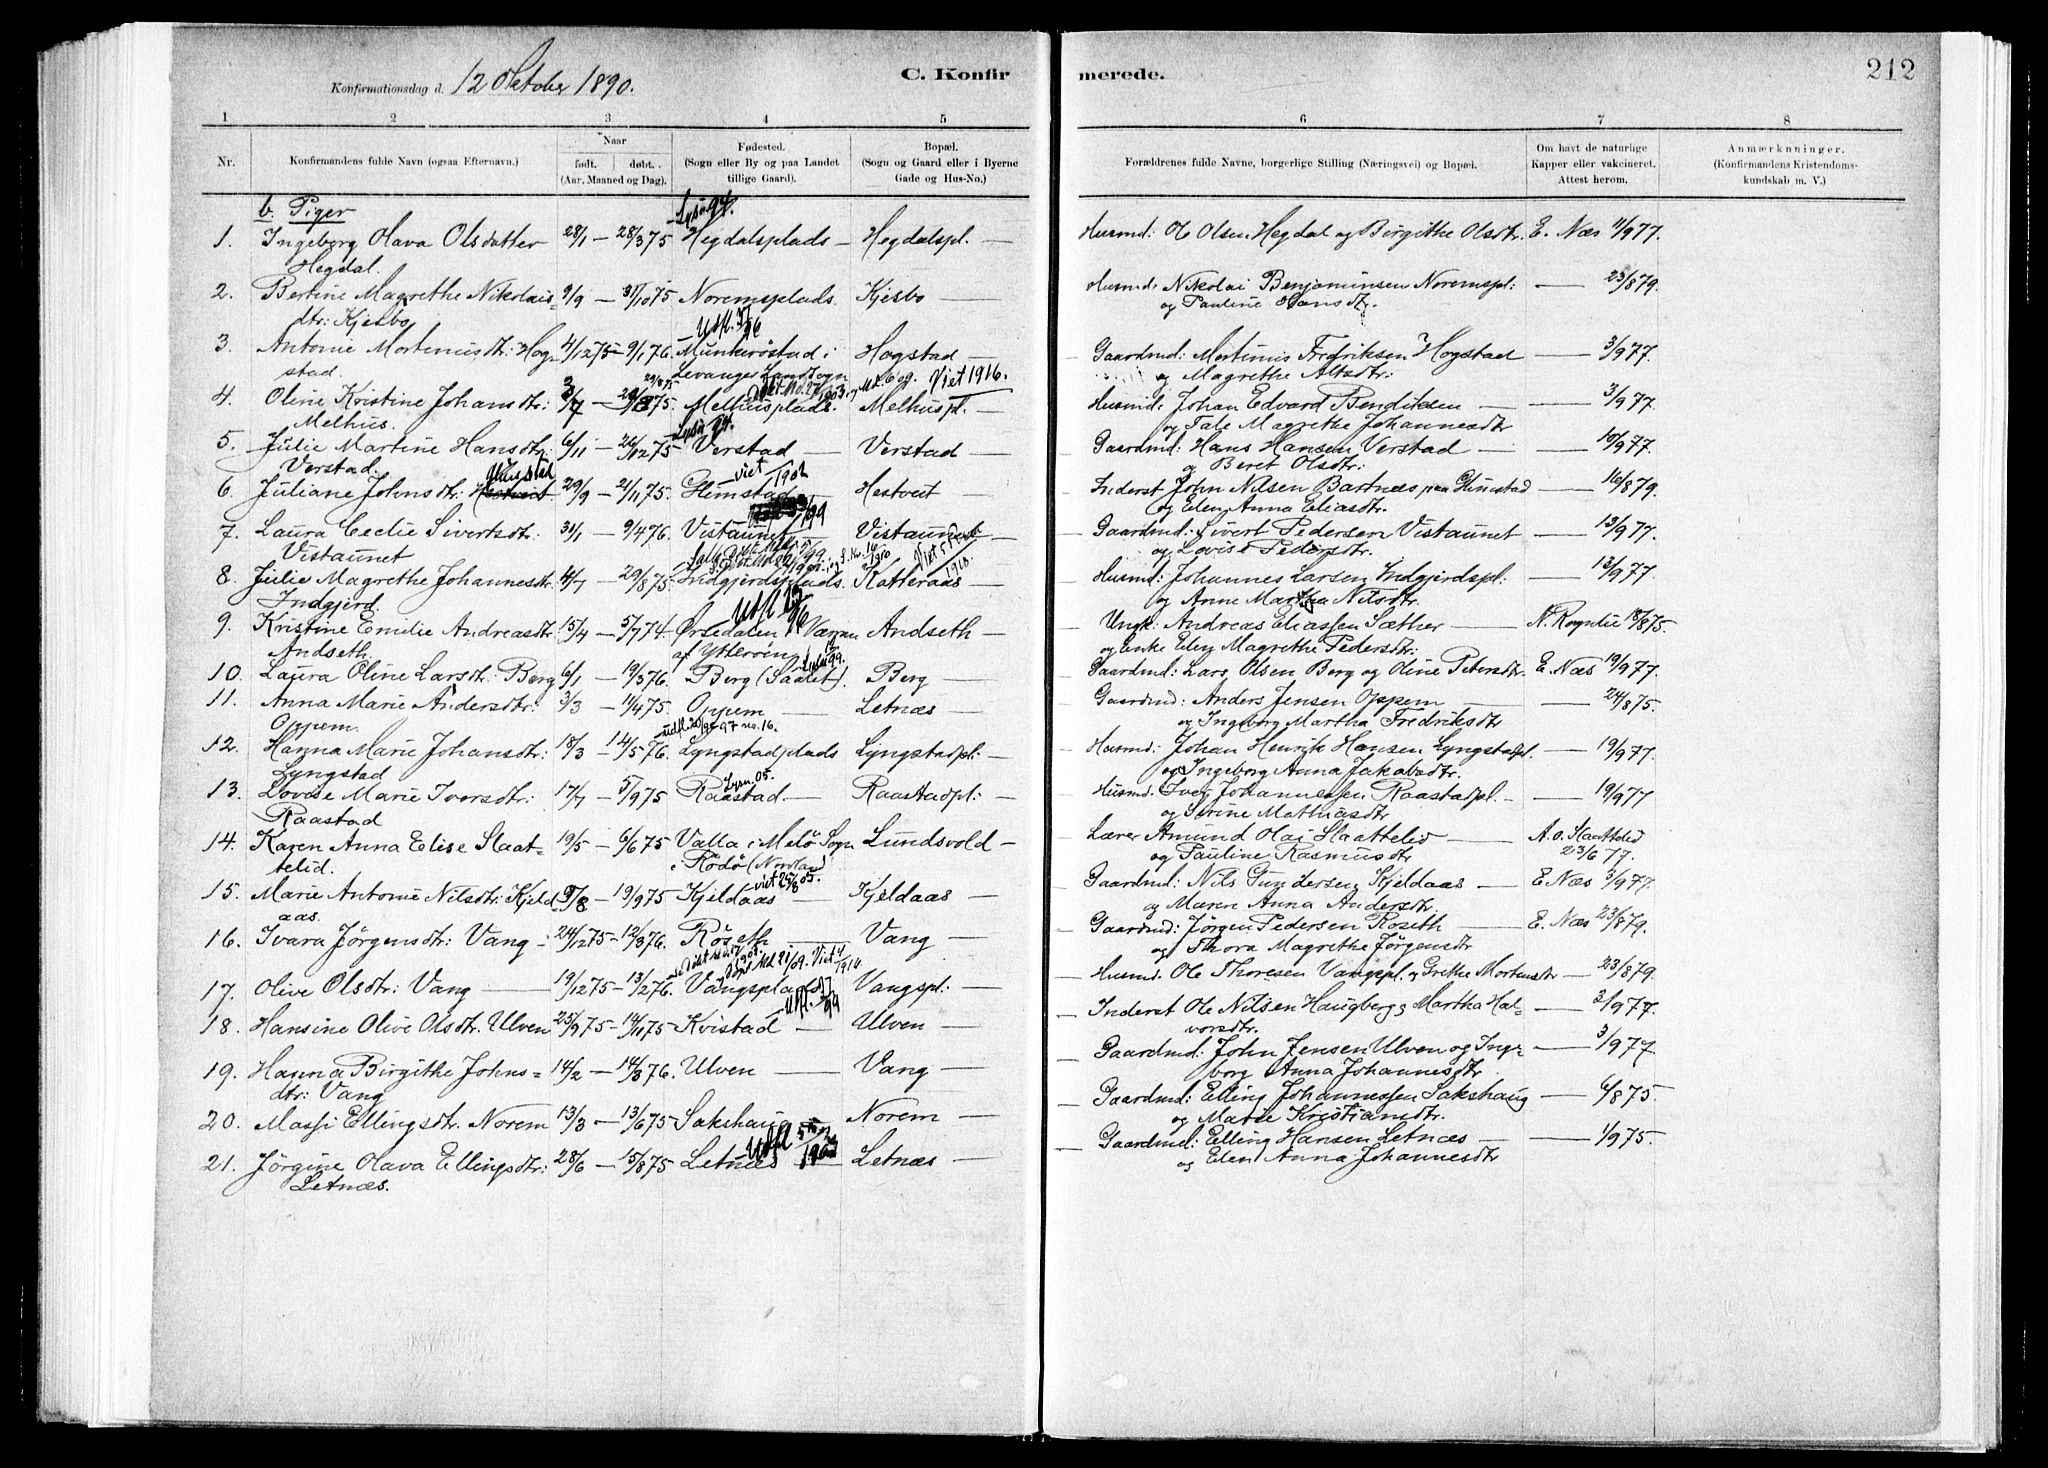 Konfirmationsdag d. 12 Oktober 1890.
C. Konfir
merede.
212
1 2 3 4 5 6 7 8
Nr.
Konfirmandens fulde Navn (ogsaa Efternavn.)
Naar
født. døbt.
(Aar, Maaned og Dag).
Fødested.
(Sogn eller By og paa Landet
tillige Gaard).
Bopæl.
(Sogn og Gaard eller i Byerne
Gade og Hus-No.)
Forældrenes fulde Navne, borgerlige Stilling (Næringsvei) og Bopæl.
Om havt de naturlige
Kapper eller vakcineret.
Attest herom.
Anmærkninger.
(Konfirmandens Kristendoms-
kundskab m. V.)
b. Piger
1. Ingeborg Olava Olsdatter 28/1 — 28/3 75 Hegdalsplads — Hegdalspl. — Husmd: Ole Olsen Hegdal og Birgithe Olsdtr. E. Næs 11/9 77.
Hegdal.
2. Bertine Magrethe Nikolais= 9/9 — 31/10 75 Noremsplads. Kjesbo — Husmd: Nikolai Benjaminsen Noremspl: — 23/8 79.
dtr: Kjesbo og Pauline Hansdtr.
3. Antonie Mortinusdtr: Hog= 4/12 75 — 9/1 76. Munkeröstad i Hogstad — Gaardmd: Mortinus Fredriksen Hogstad — 3/9 77.
stad. Levanger Landsogn og Magrethe Altsdtr:
Viet 1916.
4. Oline Kristine Johansdtr: 75 Melhusplads. Melhuspl. — Husmd: Johan Edvard Bendiksen — 3/9 77.
Melhus. og Tale Magrethe Johannesdtr
5. Julie Martine Hansdtr: 6/11 — 26/12 75 Verstad — Verstad — Gaardmd: Hans Hansen Verstad — 10/9 77.
Verstad. og Beret Olsdtr:
viet 1902
6. Juliane Johnsdtr: 29/9 — 21/11 75. Himstad Hestveit — Inderst John Nilsen Bartnæs paa Himstad — 16/8 79.
og Elen Anna Eliasdtr.
7. Laura Cecilie Sivertsdtr: 31/1 — 9/4 76. Vistaunet Vistaunet — Gaardmd: Sivert Pedersen Vistaunet — 13/9 77.
Vistaunet og Lovise Pedersdtr.
8. Julie Magrethe Johannesdtr. 4/7 — 29/8 75. Indgjerdsplads. Katteraas — Husmd: Johannes Larsen Indgjerdspl: — 13/9 77.
Indgjerd. og Anne Martha Nilsdtr.
9. Kristine Emilie Andreasdtr. 15/4 — 5/7 74 — Ørsedalen i Værran Andseth — Ungk: Andreas Eliassen Sæther — N. Rognlie 18/8 75.
Andseth. af Ytterøen og enke Elen Magrethe Pedersdtr:
10. Laura Oline Larsdtr: Berg 6/1 — 19/3 76. Berg (Saalet). Berg — Gaardmd: Lars Olsen Berg og Oline Petersdtr. E. Næs 19/9 77.
11. Anna Marie Andersdtr: 3/3 — 11/4 75. Oppem — Letnæs — Gaardmd: Anders Jensen Oppem — 24/8 75.
Oppem. og Ingeborg Martha Fredriksdtr
12. Hanna Marie Johansdtr: 18/3 — 14/5 76. Lyngstadplads Lyngstadpl: — Husmd: Johan Henrik Hansen Lyngstadpl. — 19/9 77.
Lyngstad og Ingeborg Anna Jakobsdtr.
13. Lovise Marie Iversdtr: 17/7 — 5/9 75 Raastad. — Raastadpl: — Husmd. Iver Johannessen Raastadpl. — 19/9 77
Raastad og Serine Mathiasdtr
14. Karen Anna Elise Slaat= 19/5 — 6/6 75 Valla i Melö Sogn Lundsvold — Lærer Amund Olai Slaattelid — A. O. Slaattelid
telid. i Rödö (Nordland og Pauline Rasmusdtr 23/6 77.
viet 25/8 05.
15. Marie Antonie Nilsdtr: Kjeld= 9/8 — 19/9 75 Kjeldaas — Kjeldaas — Gaardmd: Nils Gundersen Kjeldaas — E. Næs 3/9 77.
aas. og Maren Anna Andersdtr.
16. Ivara Jörgensdtr: Vang — 24/12 75 — 12/3 76. Röseth Vang — Gaardmd: Jörgen Pedersen Röseth — E. Næs 23/8 79.
og Thora Magrethe Jörgensdtr
17. Olive Olsdtr: Vang — 19/12 75 — 13/2 76. Vangsplads Vangspl: — Husmd. Ole Thoresen Vangspl. og Grethe Mortensdtr — 23/8 79.
18. Hansine Olive Olsdtr. Ulven 25/9 75 — 14/11 75 — Kvistad — Ulven — Inderst Ole Nilsen Haugberg og Martha Hal= — 3/9 77.
vorsdtr.
19. Hanna Birgithe Johns= 14/2 — 14/3 76. Ulven — Vang — Gaardmd: John Jensen Ulven og Inge= — 3/9 77
dtr: Vang borg Anna Johannesdtr
20. Massi Ellingsdtr. Norem 13/3 — 13/6 75 — Sakshaug Norem — Gaardmd: Elling Johannessen Sakshaug — 6/8 75.
og Marie Kristiansdtr.
21. Jörgine Olava Ellingsdtr: 28/6 — 15/8 75 Letnæs — Letnæs — Gaardmd: Elling Hansen Letnæs — 1/9 75.
Letnæs. og Elen Anna Johannesdtr